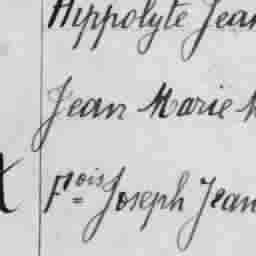 Hippolyte Jean
Jean Marie
F^ois Joseph Jean